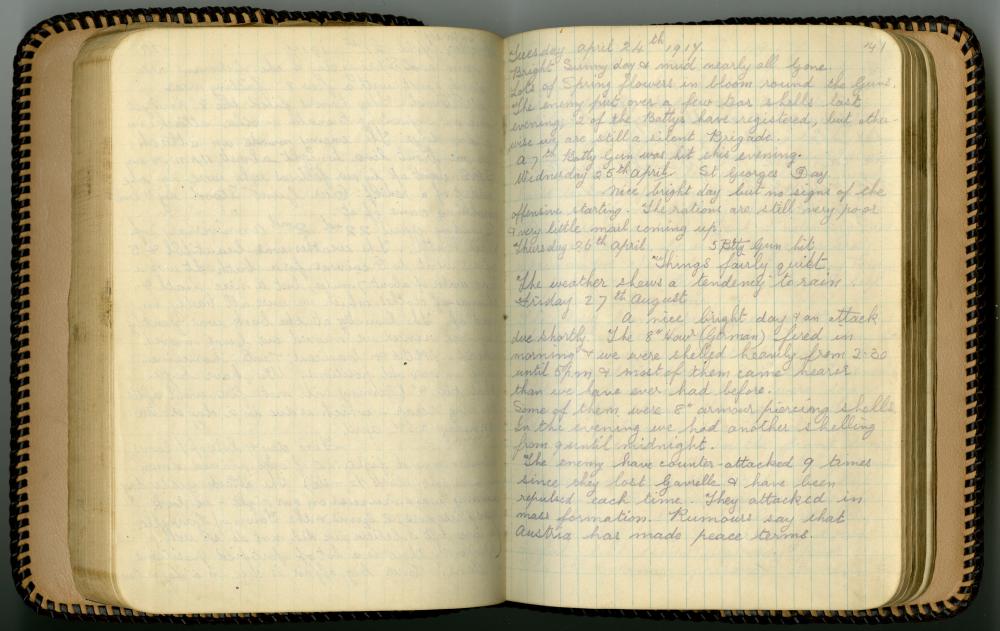 Tuesday April 24th 1917. 141
Bright Sunny day & mud nearly all gone.
Lots of Spring flowers in bloom round the Guns.
The enemy put over a few tear shells last
evening, 2 of the Battys have registered, but other-
wise we are still a silent Brigade.
A 7th Batty Gun was hit this evening.
Wednesday 25th April St Georges Day
Nice bright day but no signs of the
offensive starting. The rations are still very poor
& very little mail coming up.
Thursday 26th April 5 Btty Gun hit
Things fairly quilt
The weather shews a tendency to rain
Friday 27th August
A nice bright day & an attack
due shortly. The 8" Howr (German) fired in
morning & we were shelled heavily from 2-30
until 5pm & most of them came nearer
than we have ever had before.
Some of them were 8" armour piercing shells
In the evening we had another shelling
from 9 until midnight.
The enemy have counter-attacked 9 times
since they lost Gavrelle & have been
repulsed each time. They attacked in
mass formation. Rumours say that
Austria has made peace terms.